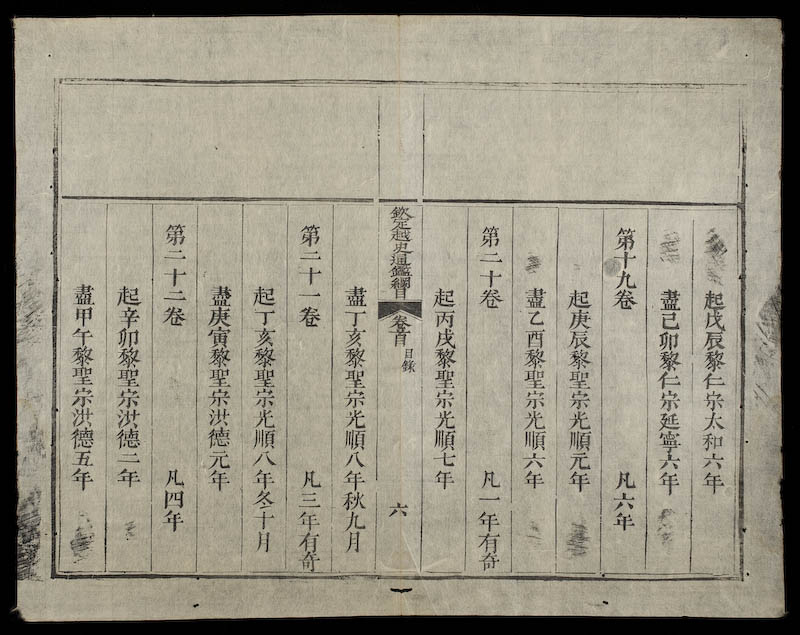 起戊辰黎仁宗太和六年
盡己卯黎仁宗延寧六年
第十九卷 凡六年
起庚辰黎聖宗光順元年
盡乙酉黎聖宗光順六年
第二十卷 凡一年有奇
起丙戌黎聖宗光順七年
欽定越史通鑑綱目 卷首 目錄 六
盡丁亥黎聖宗光順八年秋九月
第二十一卷 凡三年有奇
起丁亥黎聖宗光順八年冬十月
盡庚寅黎聖宗洪德元年
第二十二卷 凡四年
起辛卯黎聖宗洪德二年
盡甲午黎聖宗洪德五年